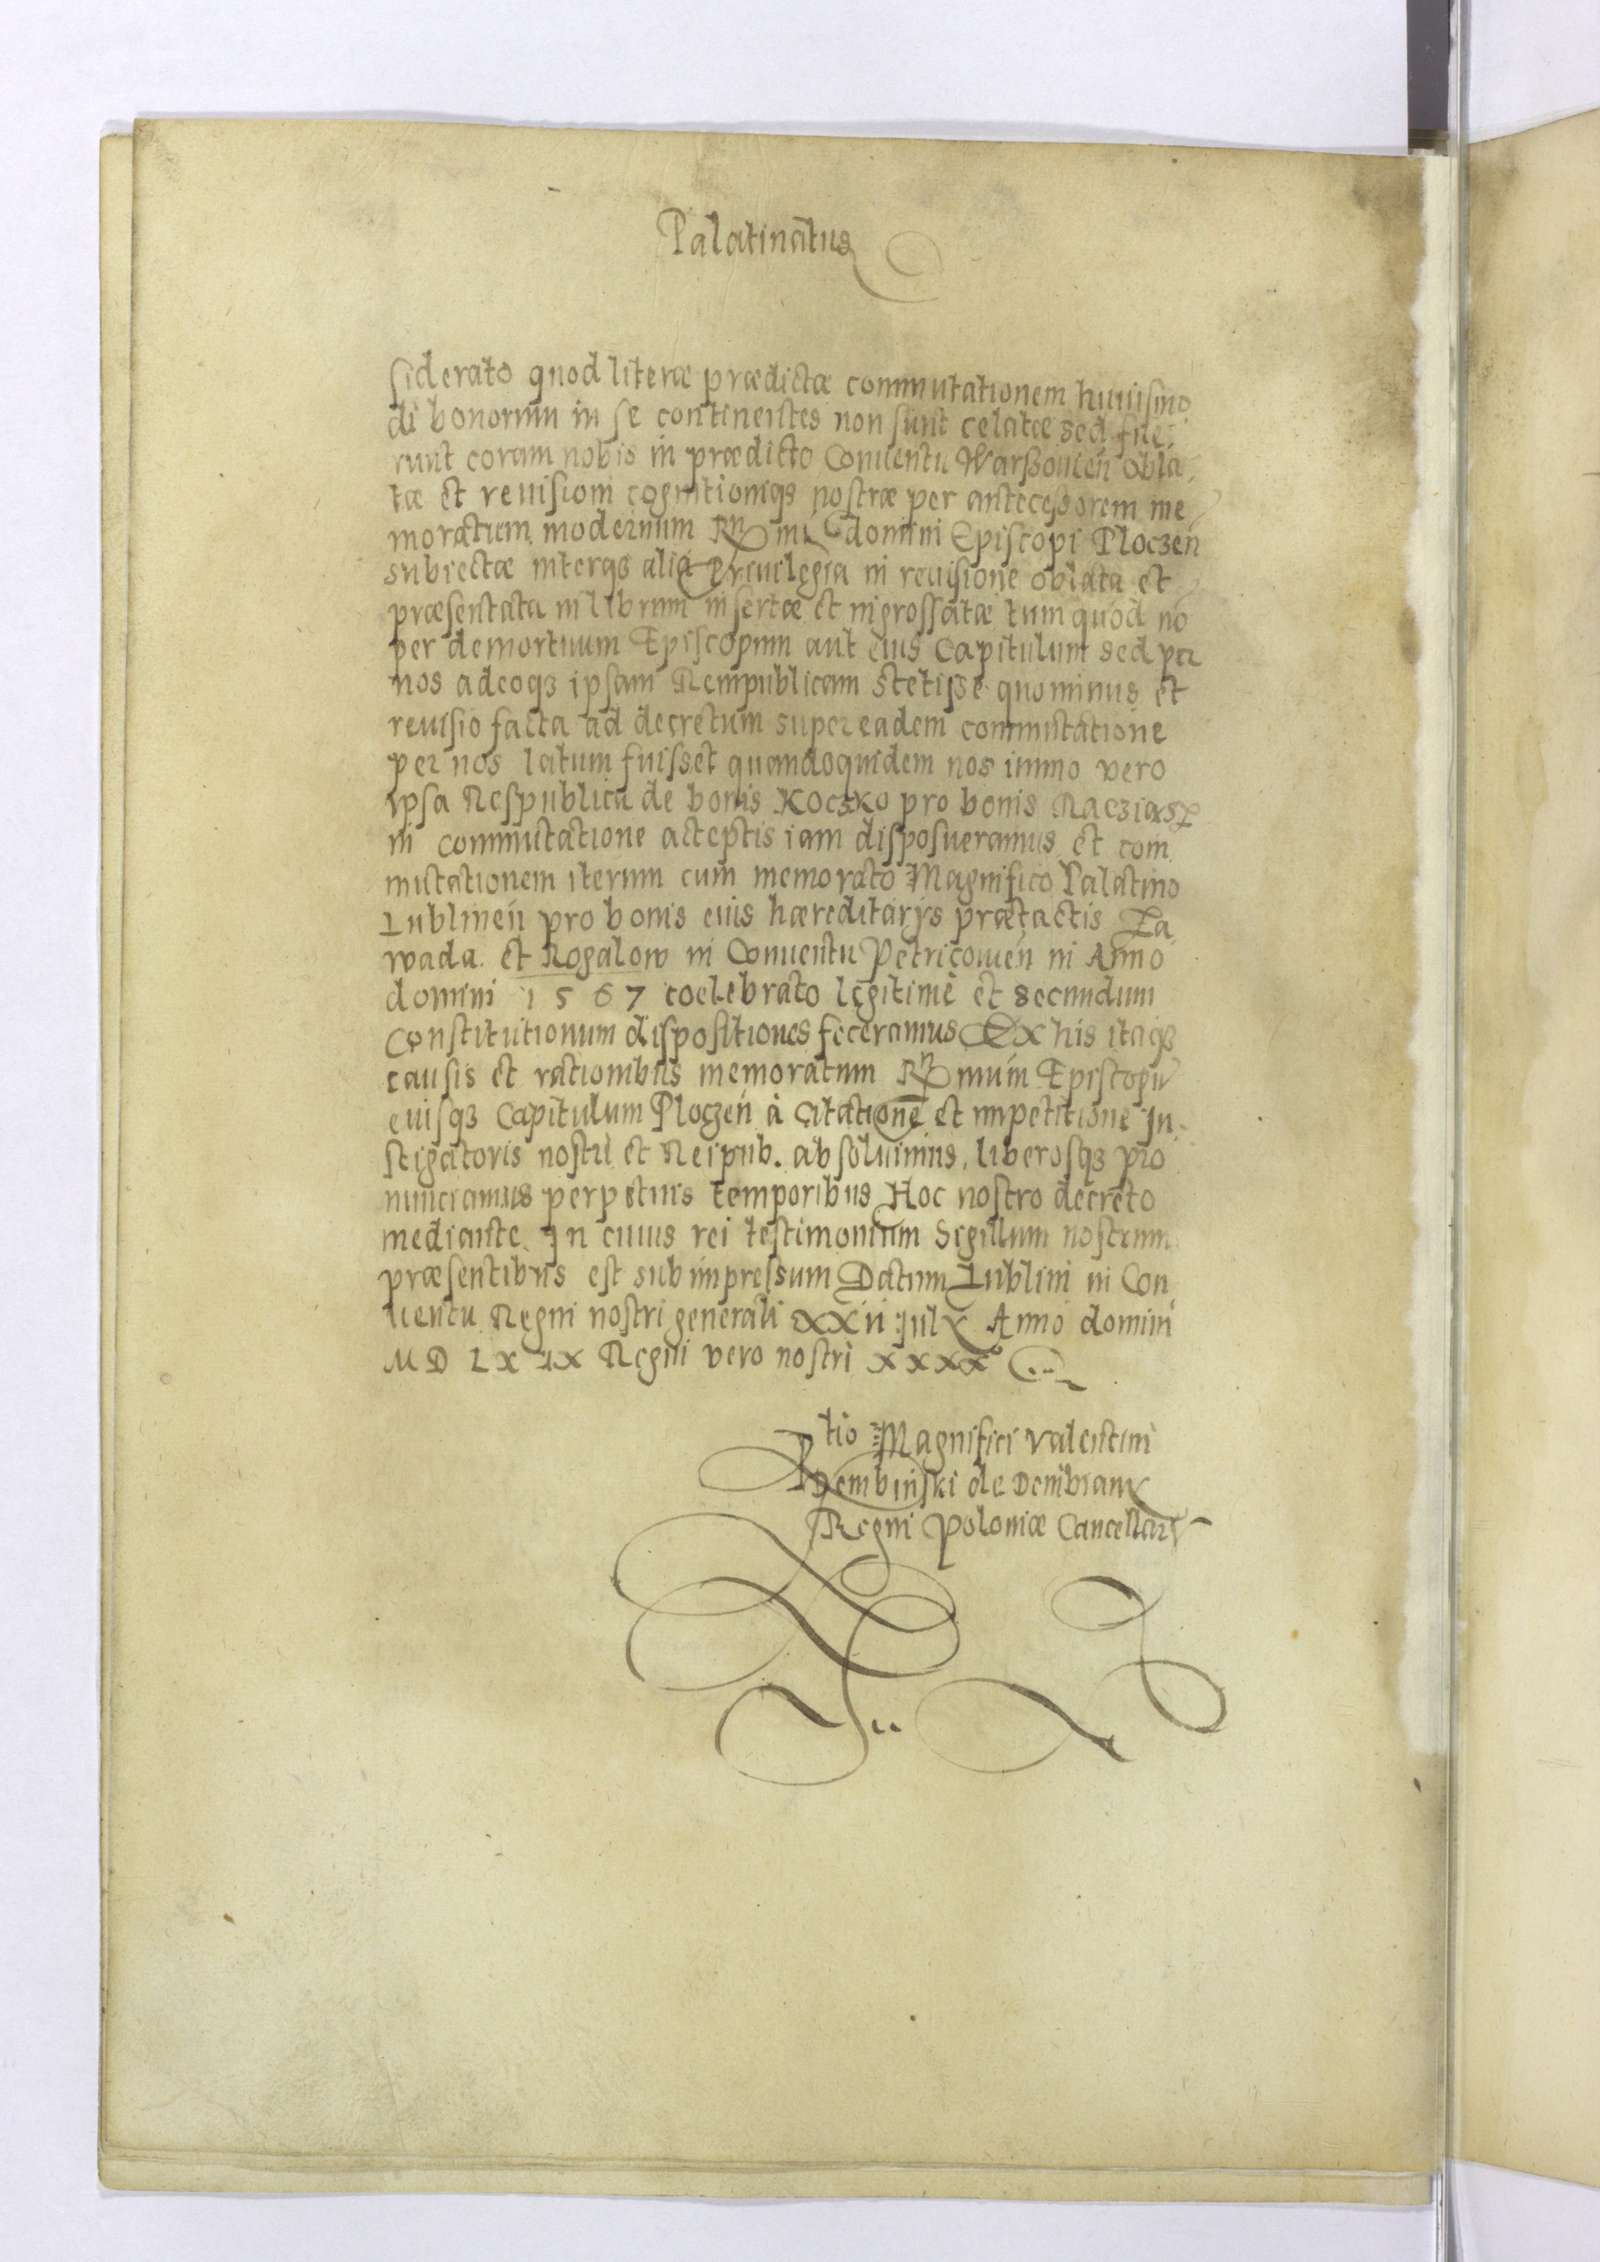 Palatinatus
siderato quod literæ prædictæ commutationem huiusmo
di bonorum in se continentes non sunt celatæ sed fue,
runt coram nobis in prædicto Conventu Warßouień obla,
tæ et reuisioni cognitioniqȝ nostræ per antecessorem me
moratum modernum Rndmi domini Episcopi Ploczeń
subiectæ interqȝ alia Priuilegia in reuisione oblata et
præsentata in librum insertæ et ingrossatæ tum quod nō
per demortuum Episcopum aut eius Capitulum sed per
nos adeoqȝ ipsam Rempublicam stetiße quominus et
reuisio facta ad decretum super eadem commutatione
per nos latum fuisset quandoquidem nos immo vero
ipsa Respublica de bonis Koczko pro bonis Raeziąsz
in commutatione acceptis iam disposueramus et com
mutationem iterum cum memorato Magnifico Palatino
Lublineń pro bonis eius hæreditarijs prætactis Za
wada et Rogalow in Conuentu Petricouień in Anno
domini 1567 coelebrato legitimè et secundum
Constitutionum dispositiones feceramus Ex his itaqȝ
causis et rationibus memoratum Rndmum Episcopū
eiusqȝ Capitulum Ploczeń à Citatione et impetitione In,
stigatoris nostri et Reipub. absoluimus, liberosqȝ pro
nunciamus perpetuis temporibus Hoc nostro decreto
mediante. In cuius rei testimonium Sigillum nostrum
præsentibus est subimpressum Datum Lublini in Con,
uentu Regni nostri generali XXII July Anno domini
MD LXIX Regni vero nostri XXXXº
Rtio Magnifici Valentini
Dembinski de Dembiany
Regni Poloniæ Cancellarÿ